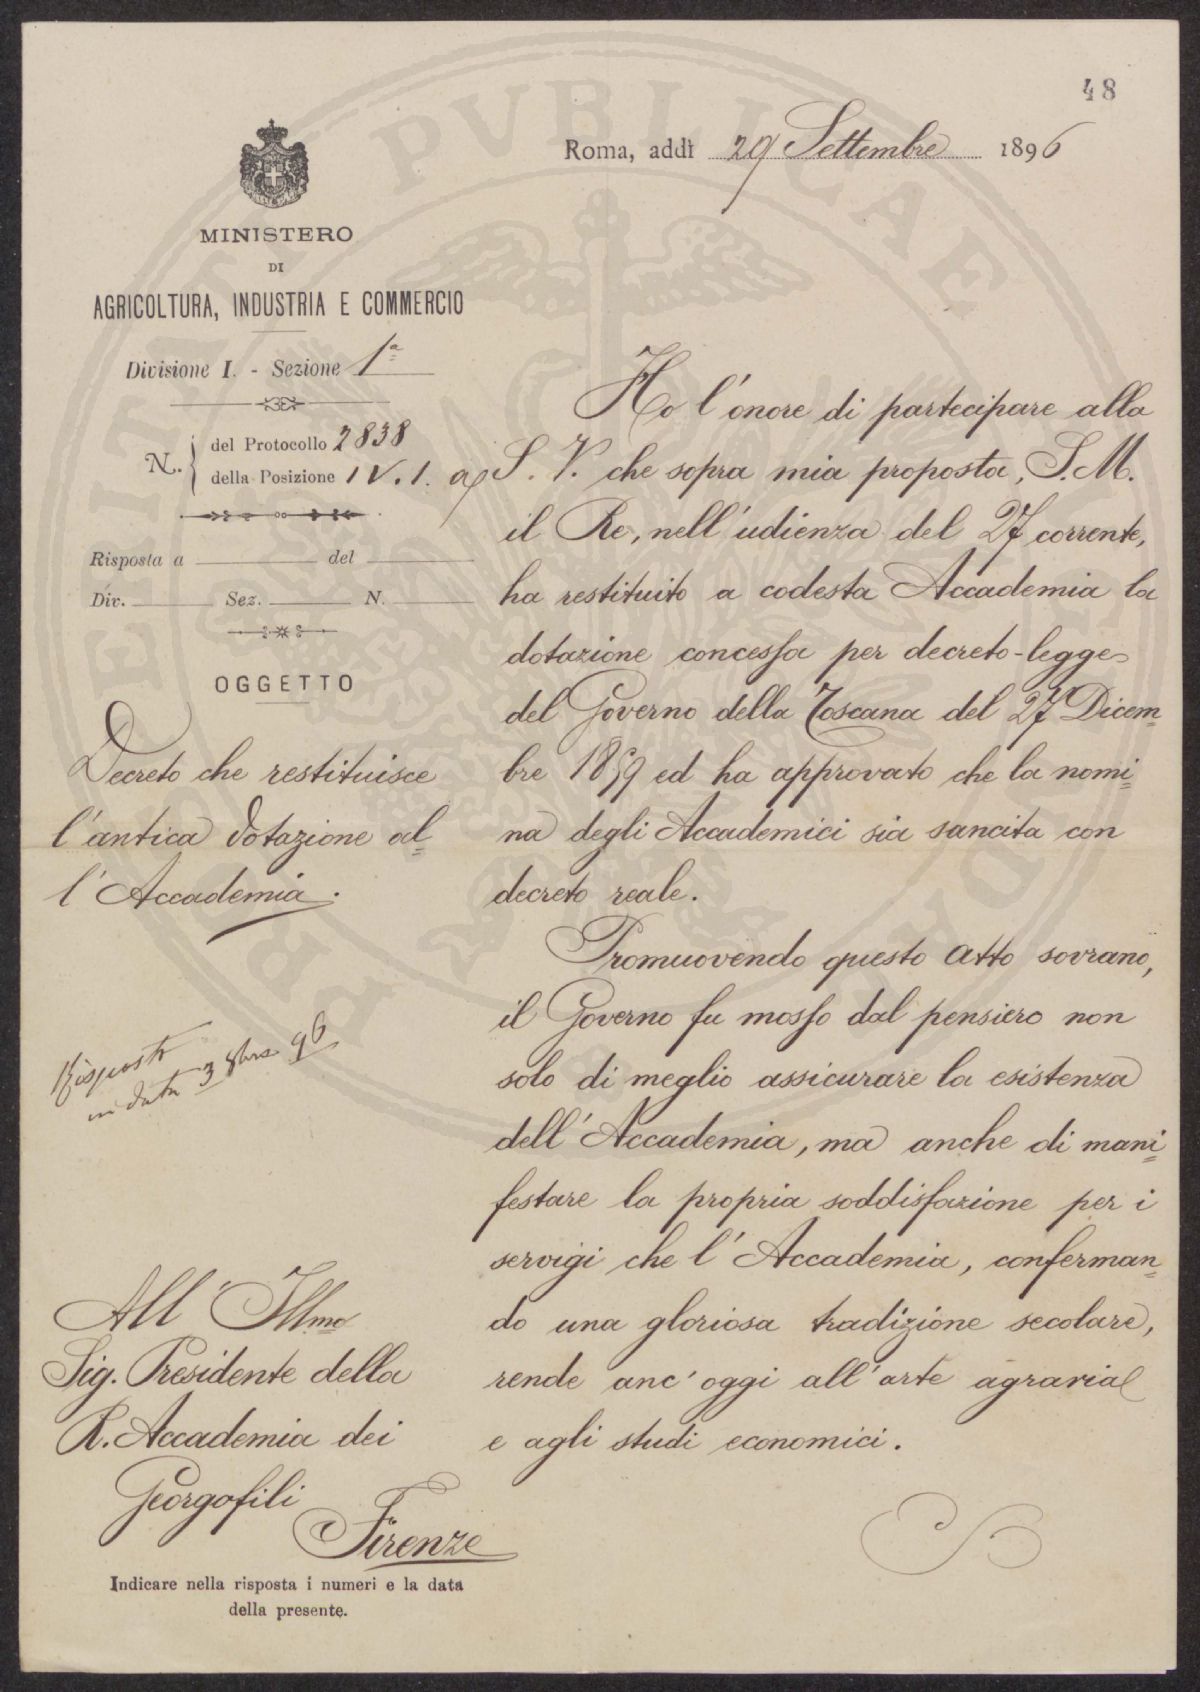 48
Roma, addì 29 Settembre 1896
MINISTERO
DI
AGRICOLTURA, INDUSTRIA E COMMERCIO
Divisione I. - Sezione 1ª
N. del Protocollo 2838
della Posizione IV. 1. a
Risposta a del
Div. Sez. N.
OGGETTO
Decreto che restituisce
l'antica dotazione al=
l'Accademia.
Risposto
in data 3 8bre 96
All' Illmo
Sig. Presidente della
R. Accademia dei
Georgofili
Firenze
Indicare nella risposta i numeri e la data
della presente.
Ho l'onore di partecipare alla
S. V. che sopra mia proposta, S. M.
il Re, nell'udienza del 27 corrente,
ha restituito a codesta Accademia la
dotazione concessa per decreto-legge
del Governo della Toscana del 27 Dicem=
bre 1859 ed ha approvato che la nomi=
na degli Accademici sia sancita con
decreto reale.
Promuovendo questo atto sovrano,
il Governo fu mosso dal pensiero non
solo di meglio assicurare la esistenza
dell'Accademia, ma anche di mani=
festare la propria soddisfazione per i
servigi che l'Accademia, conferman=
do una gloriosa tradizione secolare,
rende anc'oggi all'arte agraria
e agli studi economici.